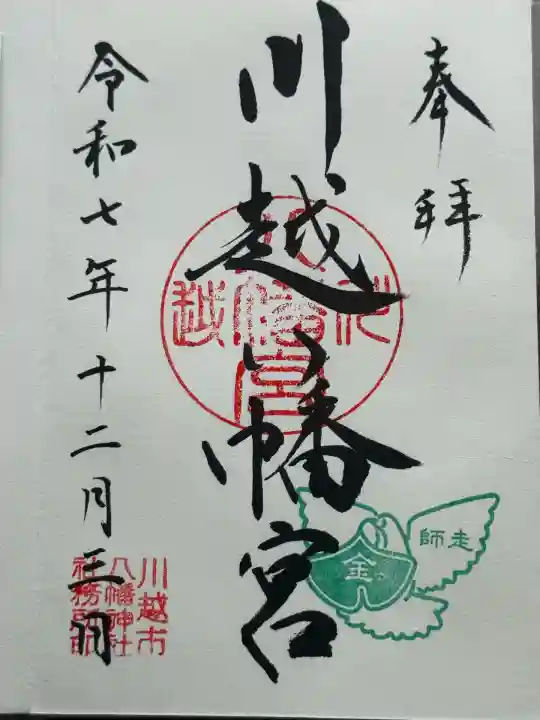 奉拝
川越八幡宮
令和七年十二月三日
川越
八幡宮
師走
金
川越市
八幡神社
社務所印